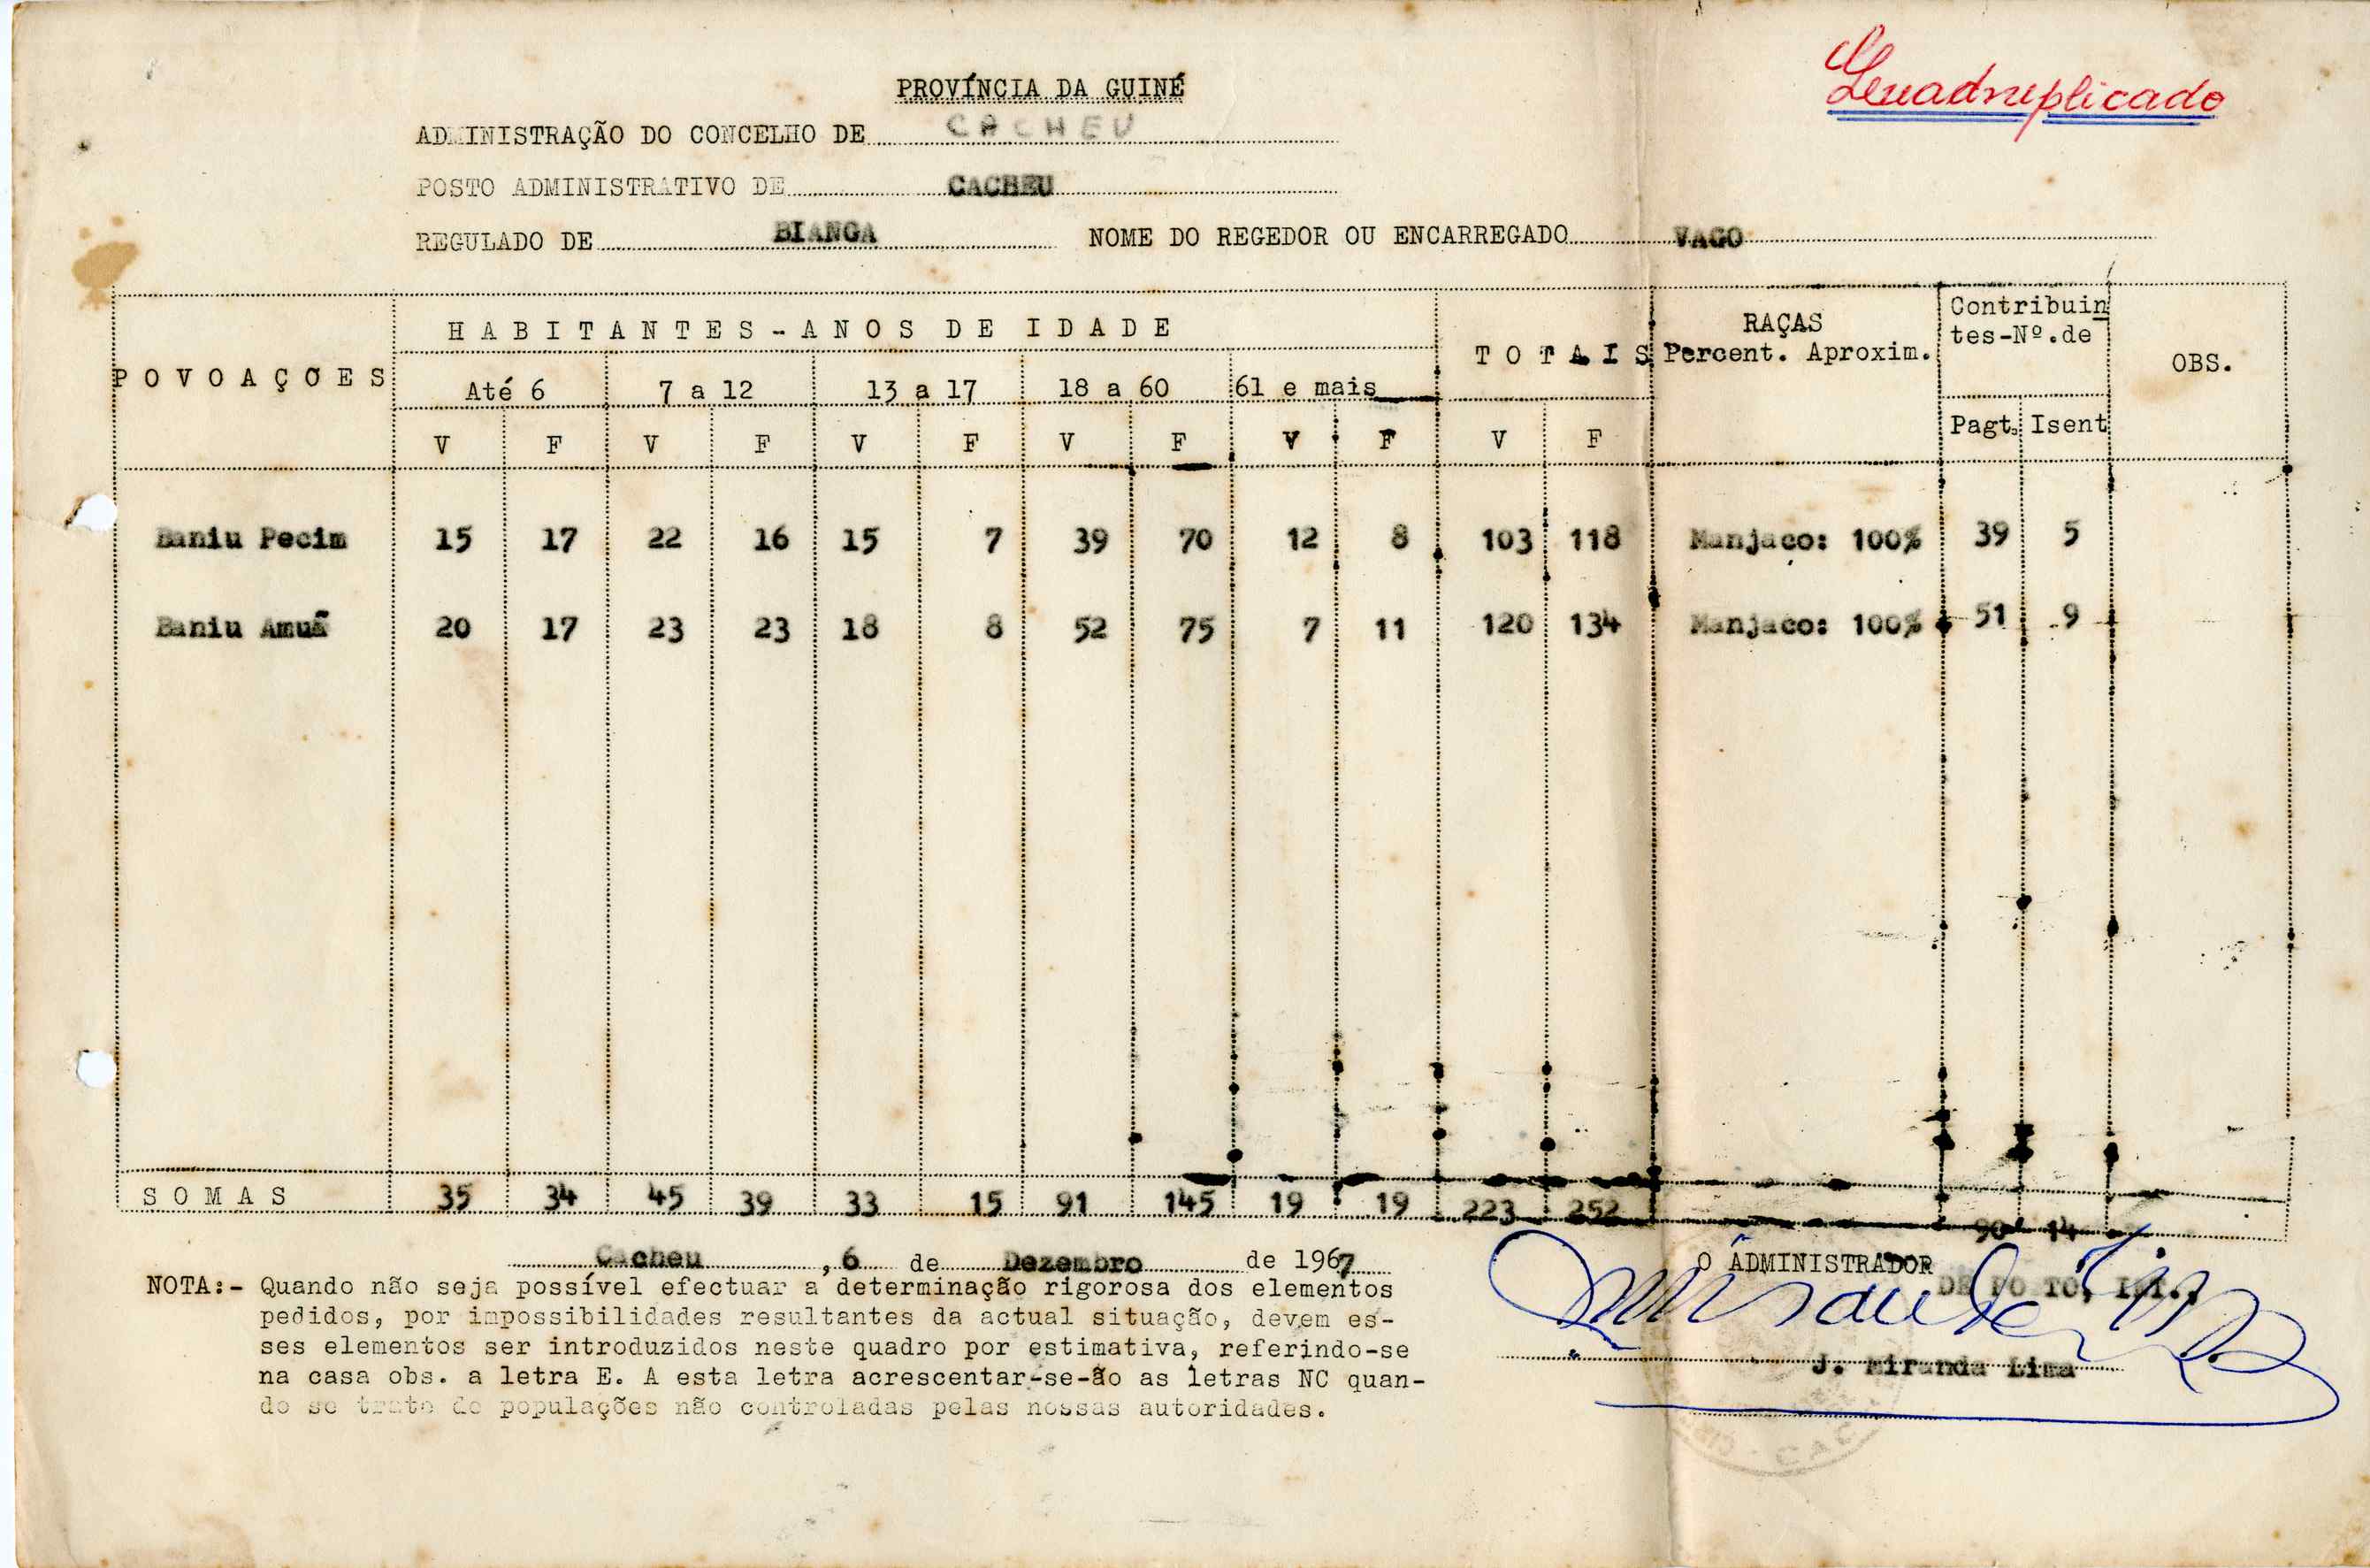 Quadruplicado
PROVÍNCIA DA GUINÉ
ADMINISTRAÇÃO DO CONCELHO DE CACHEU
POSTO ADMINISTRATIVO DE CACHEU
REGULADO DE BIANGA NOME DO REGEDOR OU ENCARREGADO VAGO
POVOAÇOES HABITANTES-ANOS DE IDADE TOTAIS RAÇAS Percent. Aproxim. Contribuin
tes-Nº.de OBS.
Até 6 7 a 12 13 a 17 18 a 60 61 e mais
V F V F V F V F V F V F Pagt. Isent
Baniu Pecim 15 17 22 16 15 7 39 70 12 8 103 118 Manjaco: 100% 39 5
Baniu Amuã 20 17 23 23 18 8 52 75 7 11 120 134 Manjaco: 100% 51 9
SOMAS 35 34 45 39 33 15 91 145 19 19 223 252 90 14
Cacheu, 6 de Dezembro de 1967
NOTA:- Quando não seja possível efectuar a determinação rigorosa dos elementos
pedidos, por impossibilidades resultantes da actual situação, devem es-
ses elementos ser introduzidos neste quadro por estimativa, referindo-se
na casa obs. a letra E. A esta letra acrescentar-se-ão as letras NC quan-
do se trate de populações não controladas pelas nossas autoridades.
O ADMINISTRADOR
DE POSTO, INT.,
J. Miranda Lima